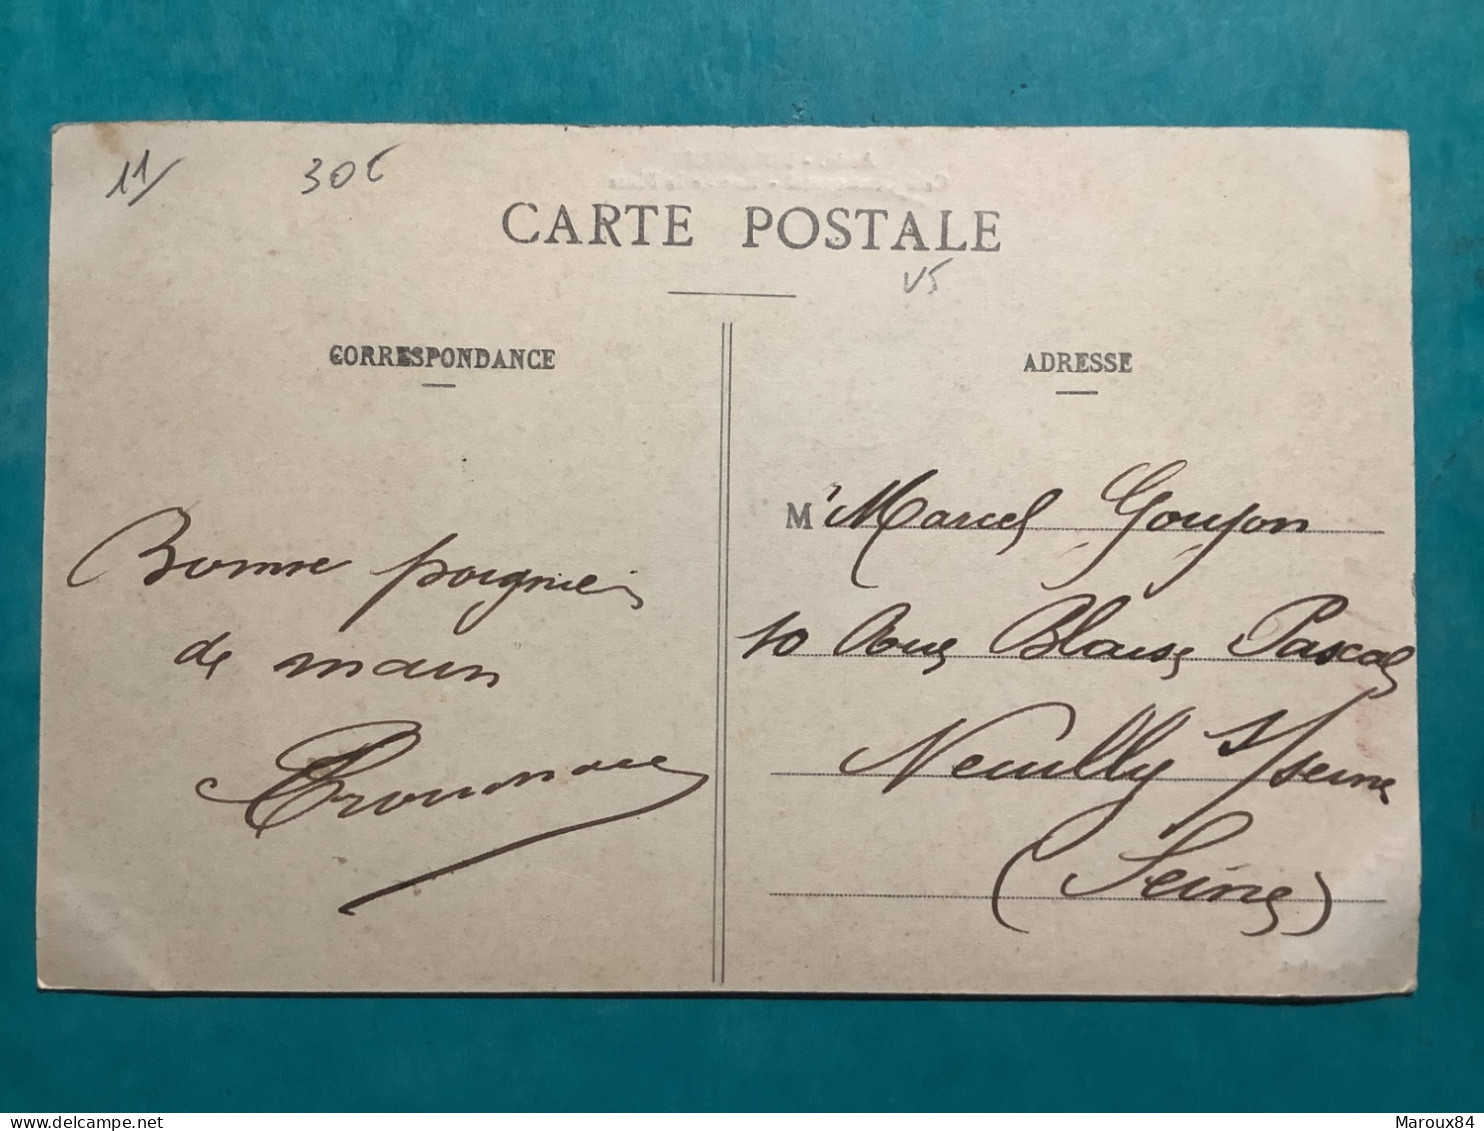 11/ 30€
CARTE POSTALE
V5
CORRESPONDANCE
ADRESSE
Bonne poignée
de main
Mr Marcel Goujon
10 Blaise Pascal
Neuilly s/ Seine
(Seine)
Maroux84